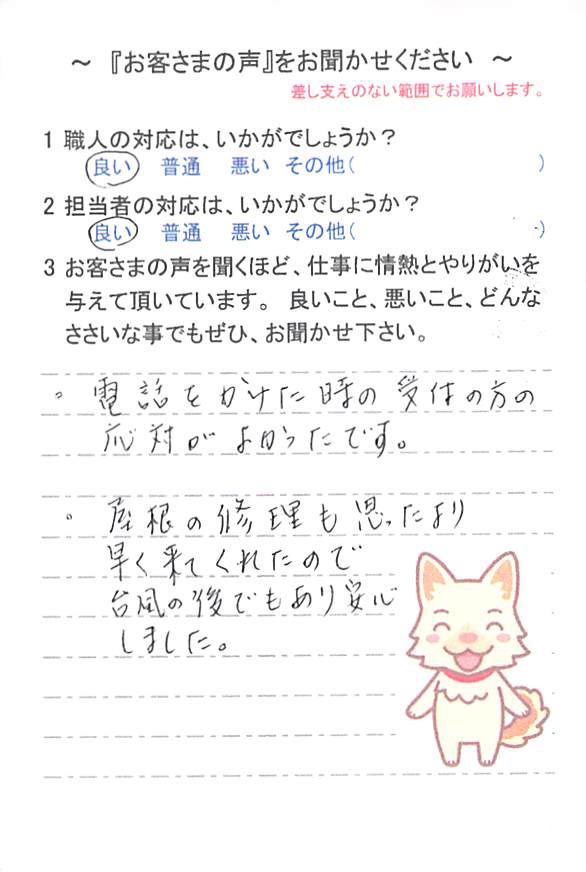 ～ 『お客さまの声』をお聞かせください ～
差し支えのない範囲でお願いします。
1 職人の対応は、いかがでしょうか？
良い 普通 悪い その他( )
2 担当者の対応は、いかがでしょうか？
良い 普通 悪い その他( )
3 お客さまの声を聞くほど、仕事に情熱とやりがいを
与えて頂いています。 良いこと、悪いこと、どんな
ささいな事でもぜひ、お聞かせ下さい。
。電話をかけた時の受付の方の
応対がよかったです。
。屋根の修理も思ったより
早く来てくれたので
台風の後でもあり安心
しました。